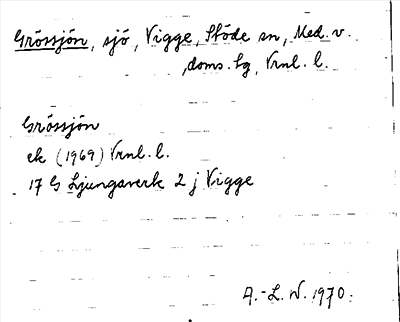 Grössjön, sjö, Vigge, Stöde sn, Med. v.
doms. sg, Vrnl. l.
Grössjön
ek (1969) Vrnl. l.
17 G Ljungaverk 2 j Vigge
A.-L. W. 1970.